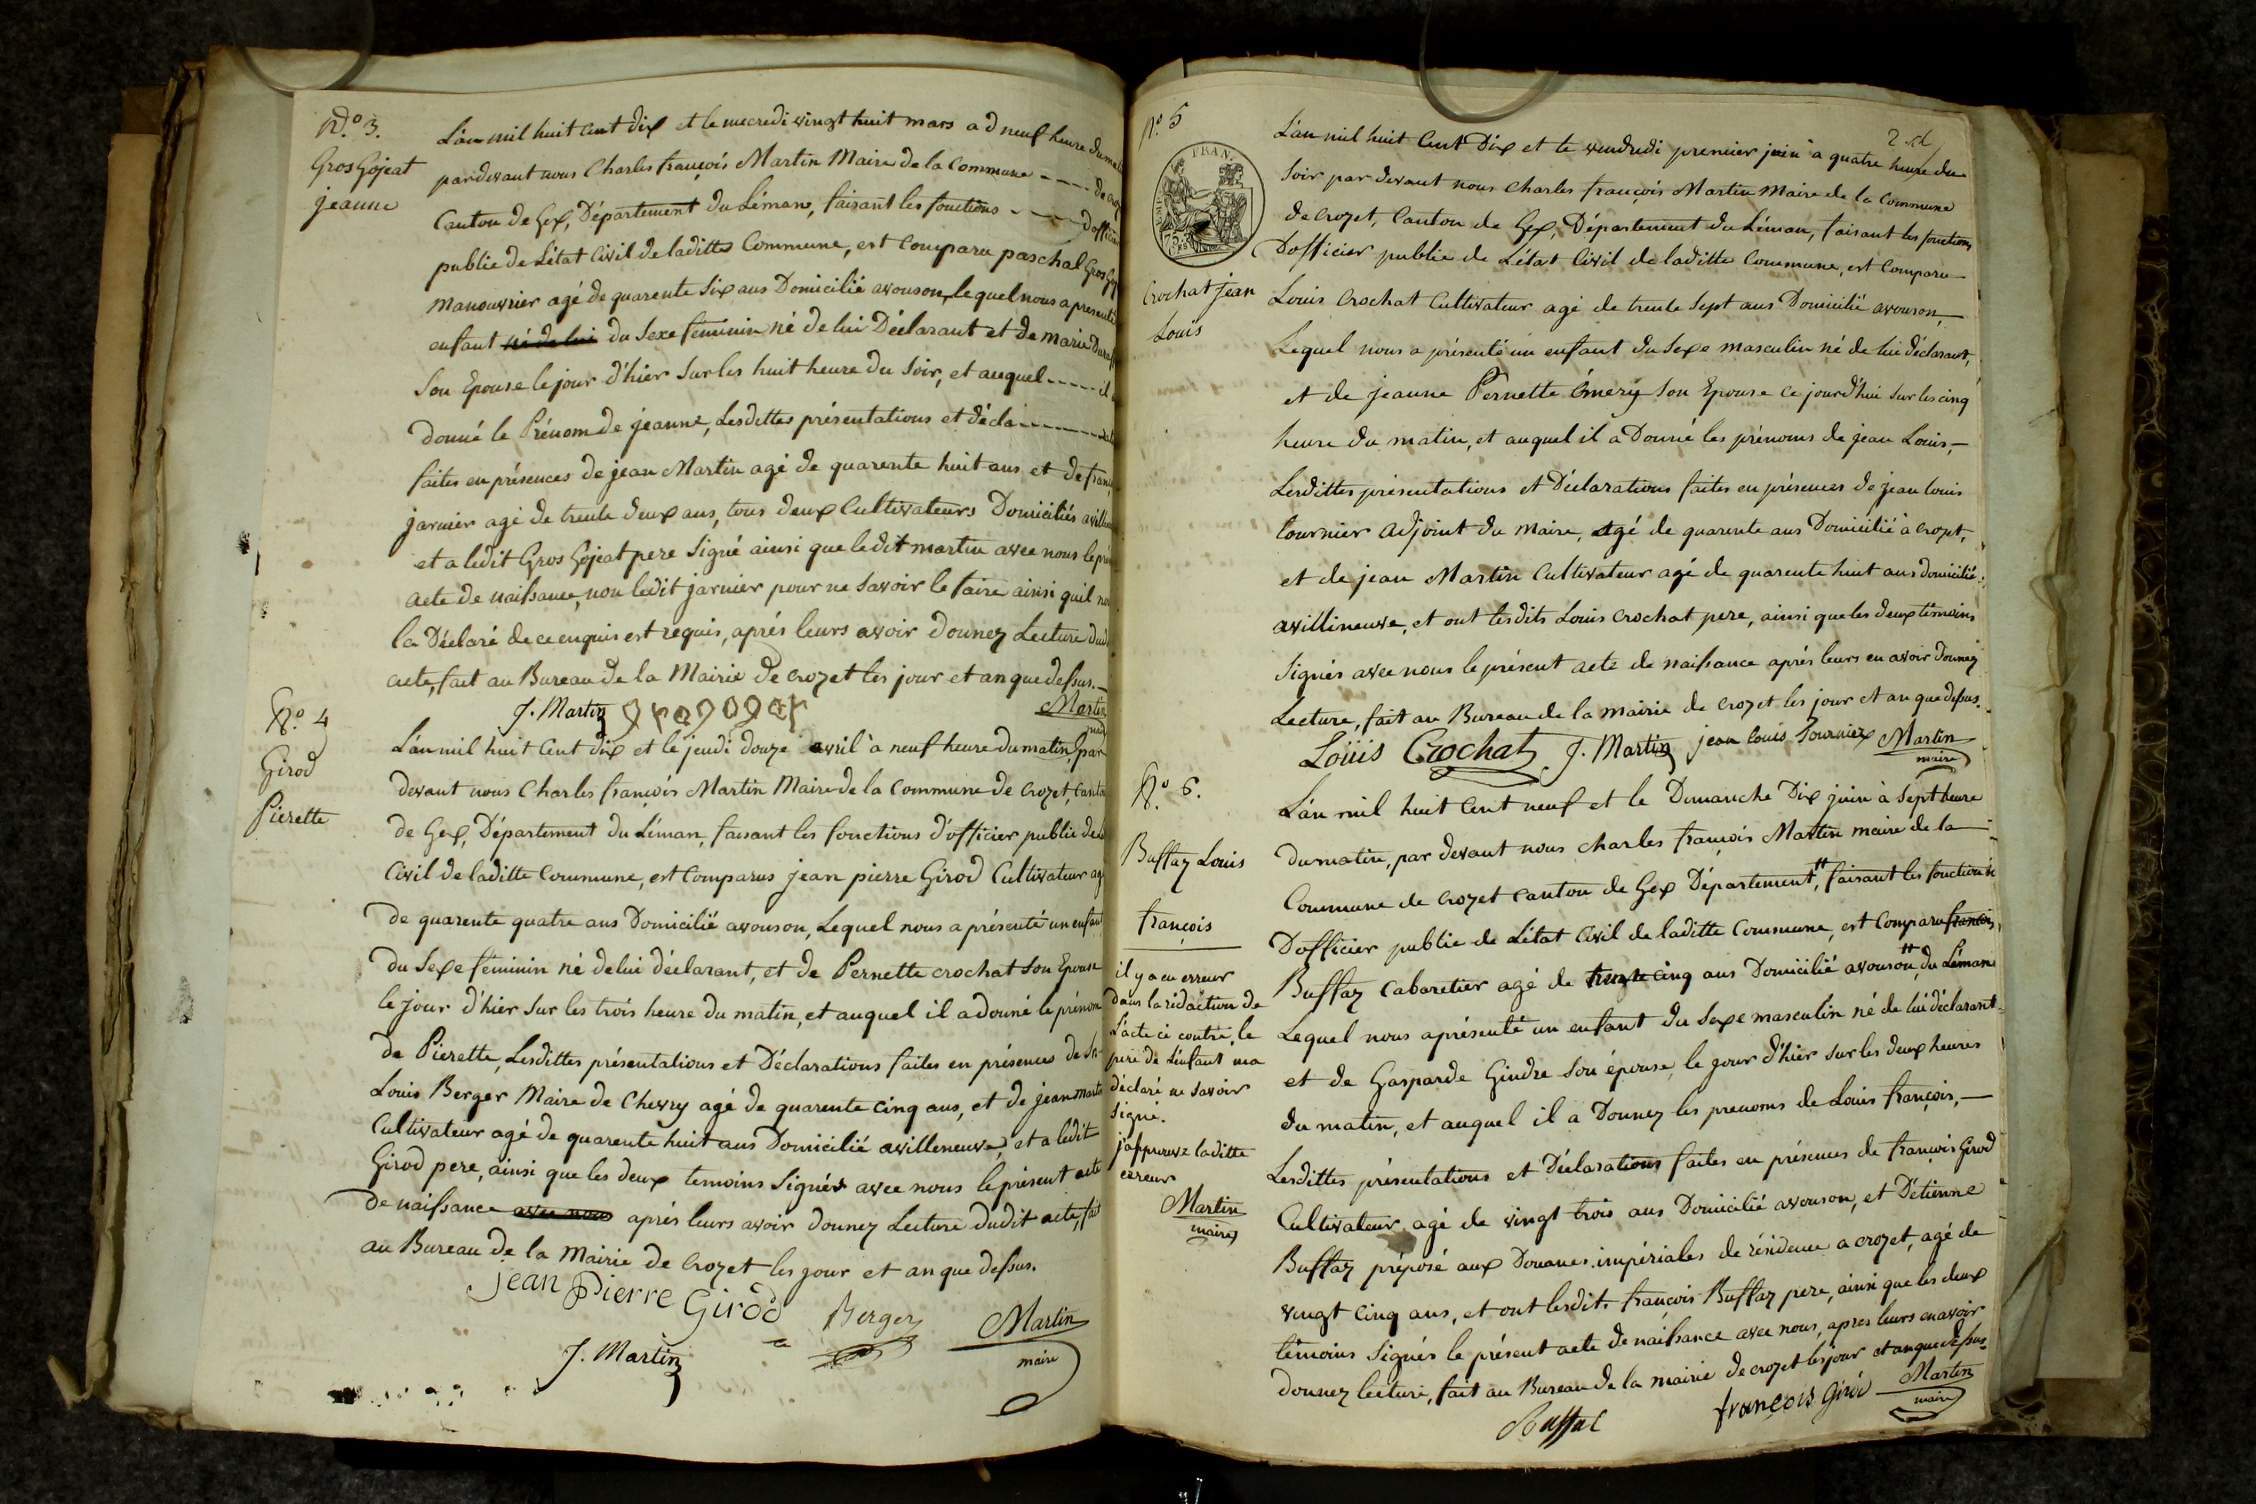 N.o 3.
Gros Gojeat
jeanne
L'an mil huit cent dix et le mecredi vingt huit mars a d neuf heure du
pardevant nous Charles françois Martin Maire de la Commune ---- de
Canton de Gex, Département du Léman, faisant les fonctions ---- d'officier
public de L'état Civil de laditte Commune, est comparu paschal Gros
manouvrier agé de quarente six ans Domicilié avouson, lequel nous a presenté
enfant né de lui du Sexe feminin né de lui Déclarant et de marie
Son Epouse le jour d'hier Sur les huit heure du Soir, et auquel ----- il
donné le Prénom de jeanne, Lesdittes présentations et décla-------
faites en présences de jean Martin agé de quarente huit ans et de
jarnier agé de trente deux ans, tous deux Cultivateurs Domiciliés
et a ledit Gros Gojeat pere Signé ainsi que ledit martin avec nous le
acte de naissance, non ledit jarnier pour ne Savoir le faire ainsi quil
la Déclaré de ce enquis est requis, aprés leurs avoir donnez Lecture
acte, fait au Bureau de la Mairie de crozet les jour et an que dessus.
J. Martin grosgogat Martin
N.o 4
Girod
Pierette
L'an mil huit Cent dix et le jeudi douze avril à neuf heure du matin, par
devant nous Charles françois Martin Maire de la Commune de Crozet,
de Gex, Département du Léman, faisant les fonctions d'officier public
Civil de laditte commune, est Comparus jean pierre Girod Cultivateur
de quarente quatre ans Domicilié avouson, Lequel nous a présenté un enfant
du Sexe féminin né de lui déclarant, et de Pernette crochat Son Epouse
le jour d'hier Sur les trois heure du matin, et auquel il a donné le prénom
de Pierette, Lesdittes présentations et Déclarations faites en présences de
Louis Berger Maire de Chevry agé de quarente Cinq ans, et de jean
Cultivateur agé de quarente huit ans Domicilié avilleneuve, et a ledit
Girod pere, ainsi que les deux temoins Signés avec nous le présent acte
de naissance avec nous aprés leurs avoir donnez Lecture dudit acte, fait
au Bureau de la Mairie de Crozet les jour et an que dessus.
jean pierre Girod Berger Martin
J. Martin maire
N.o 5
2.
FRAN.
75
Crochat jean
Louis
L'an mil huit Cent Dix et le vendredi premier juin a quatre heure du
Soir par devant nous Charles françois Martin Maire de la Commune
de crozet, Canton de Gex, Département du Léman, faisant les fonctions
D'officier public de L'état Civil de laditte Commune, est Comparu
Louis Crochat Cultivateur agé de trente Sept ans Domicilié avouson,
Lequel nous a présenté un enfant du Sexe masculin né de lui déclarant,
et de jeanne Pernette Emery Son Epouse ce jourd'hui Sur les cinq
heure du matin, et auquel il a Donné les prénoms de jean Louis,
Lesdittes présentations et Déclarations faites en présences de jean Louis
tournier adjoint du maire, agé de quarente ans Domicilié a crozet,
et de jean Martin Cultivateur agé de quarente huit ans domicilié
avilleneuve, et ont lesdits Louis Crochat pere, ainsi que les deux témoins
Signés avec nous le présent acte de naissance aprés leurs en avoir donnez
Lecture, fait au Bureau de la mairie de crozet les jour et an que dessus.
Loüis Crochat J. Martin jean louis Tournier Martin
maire
N.o 6.
Buffaz Louis
françois
il y a eu erreur
dans la rédaction de
L'acte ci contre, le
pere de L'enfant ma
déclaré ne Savoir
Signé.
j'approuve laditte
erreur
Martin
maire
L'an mil huit Cent neuf et le Dimanche Dix juin à Sept heure
du matin, par devant nous Charles françois Martin maire de la
Commune de crozet Canton de Gex Département, faisant les fonctions
D'officier public de L'état Civil de laditte Commune, est Comparu françois
Buffaz Cabaretier agé de trente cinq ans Domicilié avouson, du Léman
Lequel nous a présenté un enfant du Sexe masculin né de lui déclarant
et de Gasparde Gindre Son épouse, le jour d'hier Sur les deux heures
du matin, et auquel il a Donnez les prenoms de Louis françois,
Lesdittes présentations et Déclarations faites en présences de françois Girod
Cultivateur agé de vingt trois ans Domicilié avouson, et D'étienne
Buffaz préposé aux Douanes impériales de résidence a crozet, agé de
vingt Cinq ans, et ont lesdit. françois Buffaz pere, ainsi que les deux
témoins Signés le présent acte de naissance avec nous, apres leurs en avoir
donnez lecture, fait au Bureau de la mairie de crozet les jour et an que dessus
françois Girod Martin
maire